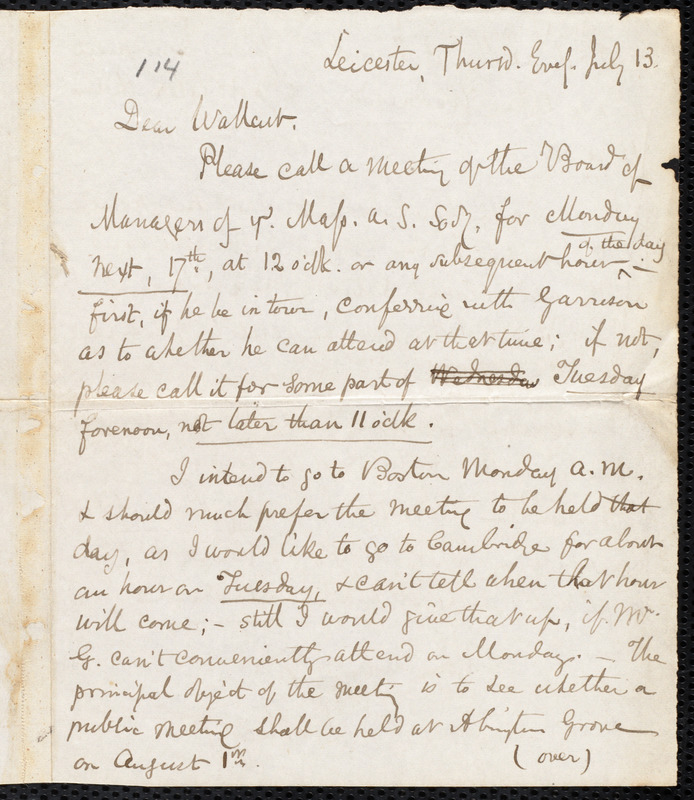 114
Leicester, Thursd. Eveg. July 13.
Dear Wallcut.
Please call a meeting of the Board of
Managers of ye. Mass. A. S. Socy. for Monday
next, 17th, at 12 o'clk. or any subsequent hour of the day –
first, if he be in town, conferring with Garrison
as to whether he can attend at that time; if not,
please call it for some part of Wednesday Tuesday
forenoon, not later than 11 o'clk.
I intend to go to Boston Monday A.M.
& should much prefer the meeting to be held that
day, as I would like to go to Cambridge for about
an hour on Tuesday, & can't tell when that hour
will come; – still I would give that up, if Mr.
G. can't conveniently attend on Monday. – The
principal object of the meeting is to see whether a
public meeting shall be held at Abington Grove
on August 1st.
(over)